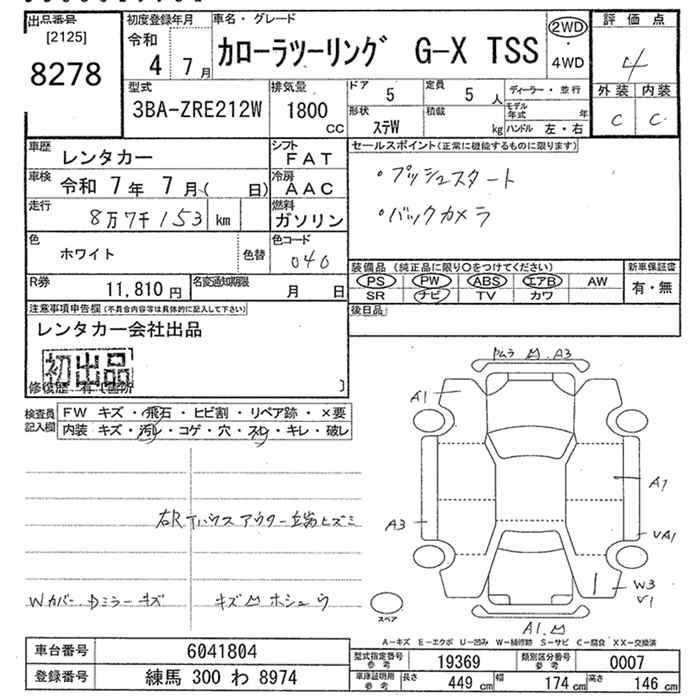 出品番号
[2125]
8278
初度登録年月
令和
4年 7月
車名・グレード
カローラツーリング G-X TSS
2WD
・
4WD
評価点
4
外装 内装
C C
型式
3BA-ZRE212W
排気量
1800
CC
ドア 5
定員 5人
ディーラー・並行
形状
ステW
積載
kg
モデル年式 年
ハンドル 左・右
車歴
レンタカー
シフト
FAT
セールスポイント(正常に機能するものに限ります)
・プッシュスタート
・バックカメラ
車検 令和 7年 7月( 日)
冷房
AAC
走行
8万7千153 km
燃料
ガソリン
色
ホワイト
色替
色コード
040
装備品 (純正品に限り○をつけてください)
新車保証書
PS PW ABS エアB AW
SR ナビ TV カワ
有・無
R券
11,810円
名変通知期限
月 日
後日品
注意事項申告欄(不具合内容等は具体的に記入して下さい)
レンタカー会社出品
初出品
修復歴 有[箇所 ]
検査員
記入欄
FW キズ・飛石・ヒビ割・リペア跡・×要
内装 キズ・汚レ・コゲ・穴・スレ・キレ・破レ
A3
A1
A1
A3
A1
W3
A1
スペア
Wカバー、Dミラーキズ
A-キズ E-エクボ U-凹み W-補修跡 S-サビ C-腐食 XX-交換済
車台番号
6041804
型式指定番号
参考
19369
類別区分番号
参考
0007
登録番号
練馬 300 わ 8974
車庫証明用
参考
長さ 449 cm
幅 174 cm
高さ 146 cm